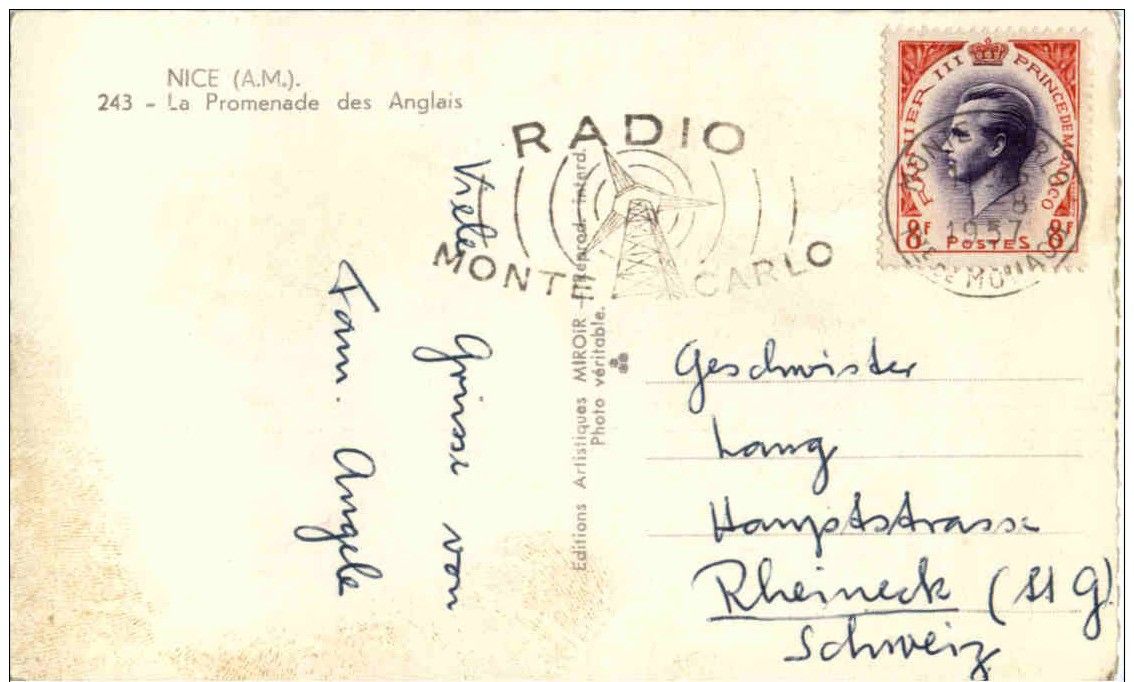 NICE (A.M.).
243 - La Promenade des Anglais
RADIO
MONTE CARLO
RAINIER III PRINCE DE MONACO
8F POSTES 8F
1957
Viele
Grüsse von
Fam. Angele
Editions Artistiques MIROIR - Reprod. interd.
Photo véritable.
Geschwister
Lang
Hauptstrasse
Rheineck (St G)
Schweiz